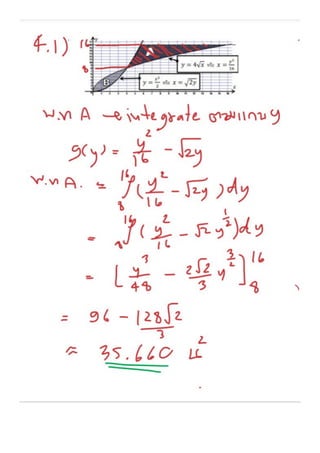 4.1) 16
8
A
B
y = 4√x หรือ x = y²/16
y = x²/2 หรือ x = √2y
พ.ท A → integrate ตามแกน y
g(y) = y²/16 - √2y
พ.ท A. = ₈∫¹⁶ (y²/16 - √2y) dy
= ₈∫¹⁶ (y²/16 - √2 y^½) dy
= [y³/48 - 2√2/3 y^(3/2)]₈¹⁶
= 96 - 128√2/3
≈ 35.660 u²